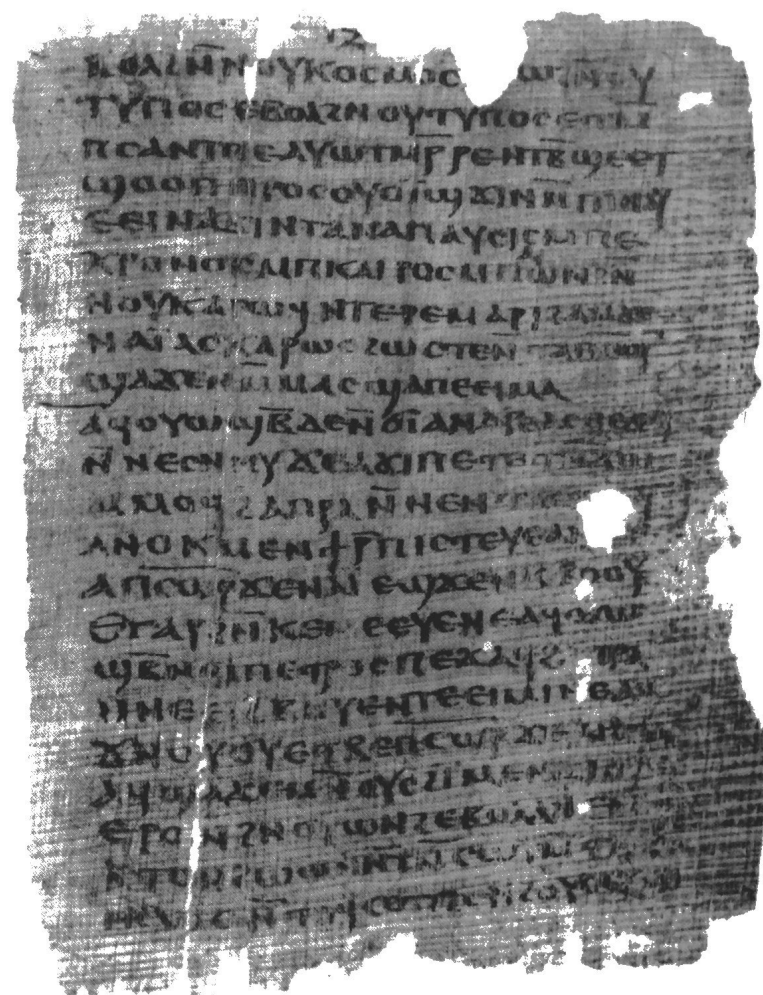 ⲓⲍ
ⲃⲟⲗ ϩⲛ̄ⲛ ⲟⲩⲕⲟⲥⲙⲟⲥ ϩⲛ̄ ⲟⲩ
ⲧⲩⲡⲟⲥ ⲉⲃⲟⲗ ϩⲛ ⲟⲩⲧⲩⲡⲟⲥ ⲉⲧⲙ̄
ⲡⲥⲁ ⲛⲧⲡⲉ ⲁⲩⲱ ⲧⲙⲣ̄ⲣⲉ ⲛⲧⲃ̄ϣⲉ ⲉⲧ
ϣⲟⲟⲡ ⲡⲣⲟⲥ ⲟⲩⲟⲓ̈ϣ ϫⲓⲛ ⲙ̄ⲡⲓⲛⲁⲩ
ⲉⲉⲓⲛⲁϫⲓ ⲛⲧⲁⲛⲁⲡⲁⲩⲥⲓⲥ ⲙⲡⲉ
ⲭⲣⲟⲛⲟⲥ ⲙⲡⲕⲁⲓⲣⲟⲥ ⲙⲡⲁⲓⲱⲛ ϩⲛ̄
ⲛⲟⲩⲕⲁⲣⲱϥ ⲛⲧⲉⲣⲉ ⲙⲁⲣⲓϩⲁⲙ ϫⲉ
ⲛⲁⲓ̈ ⲁⲥⲕⲁⲣⲱⲥ ϩⲱⲥⲧⲉ ⲛ̄ⲧⲁⲡⲥⲱ̄ⲣ̄
ϣⲁϫⲉ ⲛⲙ̄ⲙⲁⲥ ϣⲁ ⲡⲉⲉⲓⲙⲁ
ⲁϥⲟⲩⲱϣⲃ̄ ⲇⲉ ⲛ̄ϭⲓ ⲁⲛⲇⲣⲉⲁⲥ ⲡⲉϫⲁϥ
ⲛ̄ⲛⲉⲥⲛⲏⲩ ϫⲉ ⲁϫⲓ ⲡⲉⲧⲉⲧⲛ̄ϫⲱ
ⲙⲙⲟϥ ϩⲁ ⲡⲣⲁ ⲛ̄ⲛⲉⲛ
ⲁⲛⲟⲕ ⲙⲉⲛ ϯⲣ̄ⲡⲓⲥⲧⲉⲩⲉ ⲁⲛ
ⲁⲡⲥ̄ⲱ̄ⲣ̄ ϫⲉ ⲛⲁⲓ̈ ⲉϣϫⲉ ⲛⲓⲥⲃⲟⲟⲩ
ⲉ ⲅⲁⲣ ϩⲛ̄ⲕⲉⲙⲉⲉⲩⲉ ⲛⲉ ⲁϥⲟⲩⲱ
ϣⲃ̄ ⲛϭⲓ ⲡⲉⲧⲣⲟⲥ ⲡⲉϫⲁϥ ϩⲁ ⲡⲣⲁ
ⲛⲛⲉⲉⲓϩⲃⲏⲩⲉ ⲛⲧⲉⲉⲓⲙⲓⲛⲉ ⲁϥ
ϫⲛⲟⲩⲟⲩ ⲉⲧⲃⲉ ⲡⲥ̄ⲱ̄ⲣ̄ ϫⲉ ⲙⲏⲧⲓ
ⲁϥϣⲁϫⲉ ⲙⲛ̄ ⲟⲩⲥϩⲓⲙⲉ ⲛϫⲓⲟⲩⲉ
ⲉⲣⲟⲛ ϩⲛ ⲟⲩⲱⲛϩ ⲉⲃⲟⲗ ⲁⲛ
ⲕⲧⲟⲛ ϩⲱⲱⲛ ⲛⲧⲛ̄ⲥⲱⲧⲙ̄
ⲛⲥⲱⲥ ⲛ̄ⲧⲟϥⲥⲟⲧⲡⲥ̄ ⲛϩⲟⲩⲟ ⲉⲣⲟⲛ